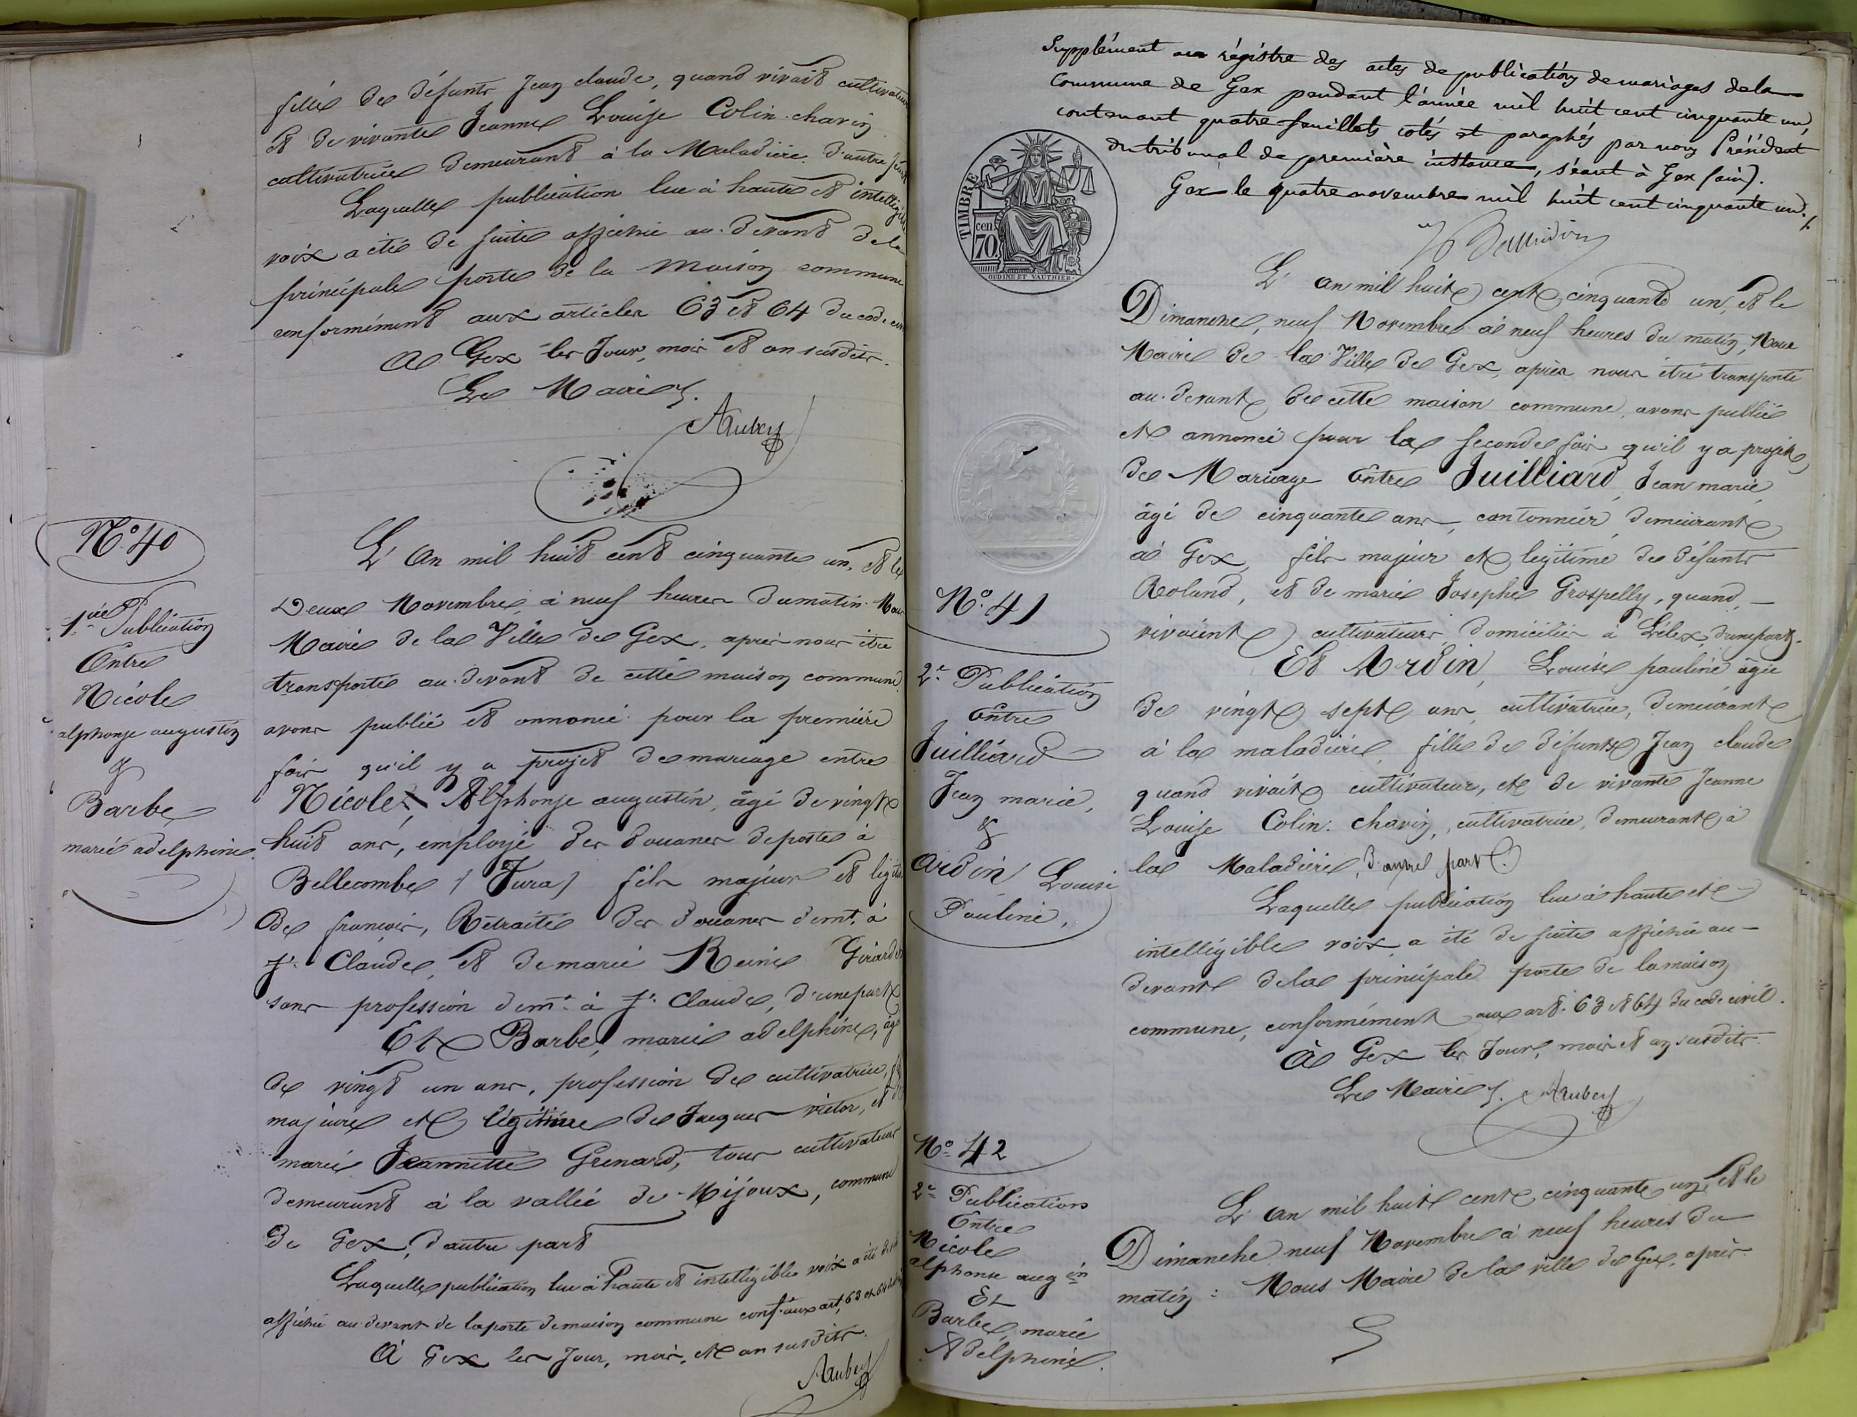 fille de défunts Jean claude, quand vivait cultivateur
et de vivante Jeanne Louise Colin-chavin
cultivatrice demeurant à la Maladière, d'autre part
Laquelle publication lue à haute et intelligible
voix a été de suite affichée au-devant de la
principale porte de la Maison commune
conformément aux articles 63 et 64 du code civil
à Gex les Jour, mois et an susdits.
Le Maire
Aubery
N° 40
1ère Publication
Entre
Nicole
alphonse augustin
&
Barbe
marie adelphine.
L'an mil huit cent cinquante un, et le
Deux Novembre, à neuf heures du matin Nous
Maire de la Ville de Gex, après nous être
transporté au-devant de cette maison commune,
avons publié et annoncé pour la première
fois qu'il y a projet de mariage entre
Nicole, Alphonse augustin, âgé de vingt
huit ans, employé des douanes de poste à
Bellecombe (Jura) fils majeur et légit.
de françois, Retraité des douanes demt. à
St. Claude, et de marie Reine Girardet
sans profession demt. à St. Claude, d'une part
Et Barbe, marie adelphine, âgée
de vingt un ans, profession de cultivatrice,
majeure et légitime de Jacques victor, et de
marie Jeannette Grenard, tous cultivateurs
demeurant à la vallée de Mijoux, commune
de Gex, d'autre part
Laquelle publication lue à haute et intelligible voix a été de suite
affichée au-devant de la porte de maison commune conft. aux art. 63 et 64
à Gex les Jour, mois, et an susdits.
Aubery
Supplément au régistre des actes de publications de mariages de la
Commune de Gex pendant l'année mil huit cent cinquante un,
contenant quatre feuillets cotés et paraphés par nous Président
du tribunal de première instance, séant à Gex (ain).
Gex le quatre novembre mil huit cent cinquante un.
TIMBRE
70 cen
OUDINE ET VAUTHIER
L'an mil huit cent cinquante un, et le
Dimanche, neuf Novembre à neuf heures du matin, Nous
Maire de la Ville de Gex, après nous être transporté
au-devant de cette maison commune, avons publié
et annoncé pour la seconde fois qu'il y a projet
de Mariage Entre Juilliard, Jean marie,
âgé de cinquante ans, cantonnier, demeurant
à Gex, fils majeur et légitime de défunts
Roland, et de marie Josephe Grospelly, quand
vivaient cultivateurs domiciliés à Lélex, d'une part.
Et Ardin, Louise pauline âgée
de vingt sept ans, cultivatrice, demeurant
à la maladière, fille de défunt Jean claude
quand vivait cultivateur, et de vivante Jeanne
Louise Colin-chavin, cultivatrice, demeurant à
la Maladière, d'autre part.
Laquelle publication lue à haute et
intelligible voix, a été de suite affichée au-
devant de la principale porte de la maison
commune, conformément aux art. 63 et 64 du code civil.
à Gex les Jour, mois et an susdits.
Le Maire Aubery
N° 41
2e Publication
Entre
Juilliard
Jean marie,
&
Ardin Louise
Pauline,
N° 42
2e Publication
Entre
Nicole
alphonse aug in
Et
Barbe, marie
Adelphine.
L'an mil huit cent cinquante un, et le
Dimanche neuf Novembre à neuf heures du
matin : Nous Maire de la ville de Gex, après